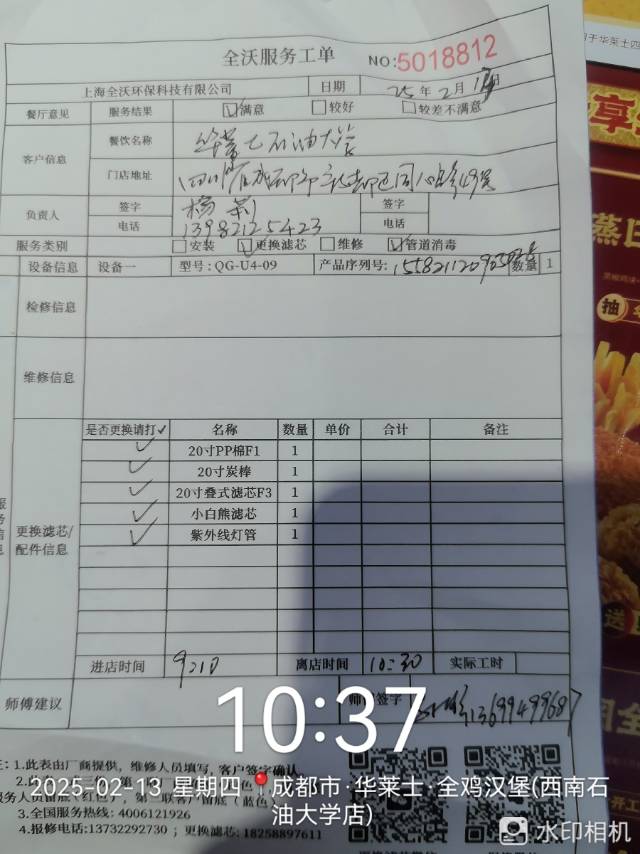 全沃服务工单 NO:5018812
上海全沃环保科技有限公司 日期 25年2月13日
餐厅意见 服务结果 ☑满意 □较好 □较差不满意
客户信息 餐饮名称 华莱士石油大学
门店地址 四川省成都市新都区
负责人 签字 杨 签字
电话 13982125423 电话
服务类别 □安装 ☑更换滤芯 □维修 ☑管道消毒
设备信息 设备一 型号:QG-U4-09 产品序列号: 数量 1
检修信息
维修信息
更换滤芯/配件信息
是否更换请打✓ 名称 数量 单价 合计 备注
✓ 20寸PP棉F1 1
✓ 20寸炭棒 1
✓ 20寸叠式滤芯F3 1
✓ 小白熊滤芯 1
✓ 紫外线灯管 1
进店时间 9:10 离店时间 10:30 实际工时
师傅建议 签字 13699499687
10:37
注:1.此表由厂商提供,维修人员填写,客户签字确认。
2025-02-13 星期四 成都市·华莱士·全鸡汉堡(西南石
油大学店)
3.全国服务热线:4006121926
4.报修电话:13732292730;更换滤芯:18258897611
水印相机